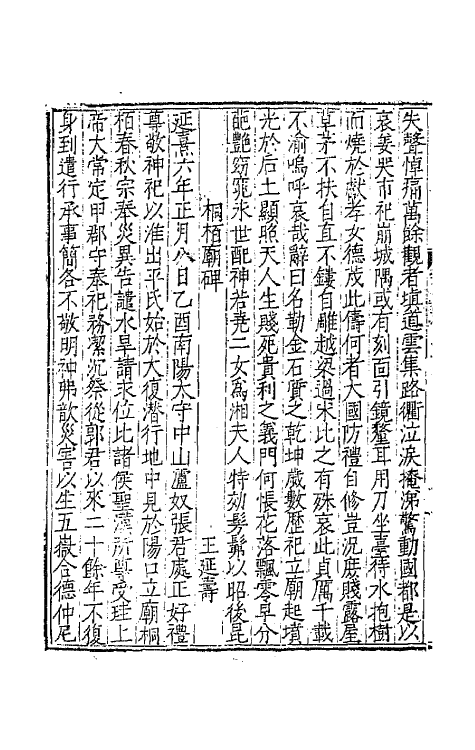 失聲悼痛萬餘觀者填道雲集路衢泣淚掩涕驚動國都是以
哀姜哭市杞崩城隅或有刻面引鏡剺耳用刀坐臺待水抱樹
而燒於戲孝女德茂此儔何者大國防禮自修豈況庶賤露屋
草茅不扶自直不鏤自雕越梁過宋比之有殊哀此貞厲千載
不渝嗚呼哀哉辭曰名勒金石質之乾坤歲數歷祀立廟起墳
光於后土顯照天人生賤死貴利之義門何悵花落飄零早分
葩艷窈窕永世配神若堯二女為湘夫人時効髣髴以昭後昆
桐栢廟碑 王延壽
延熹六年正月八日乙酉南陽太守中山盧奴張君處正好禮
尊敬神祀以淮出平氏始於大復潛行地中見於陽口立廟桐
栢春秋宗奉災異告譴水旱請求位比諸侯聖漢所尊受珪上
帝大常定甲郡守奉祀務潔沉祭從郭君以來二十餘年不復
身到遣行承事簡各不敬明神弗歆災害以生五嶽合德仲尼